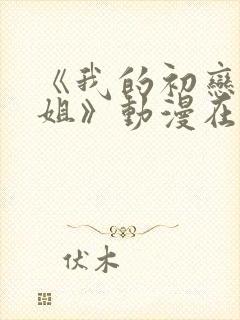 《我的初戀
姐》動漫在
伏木